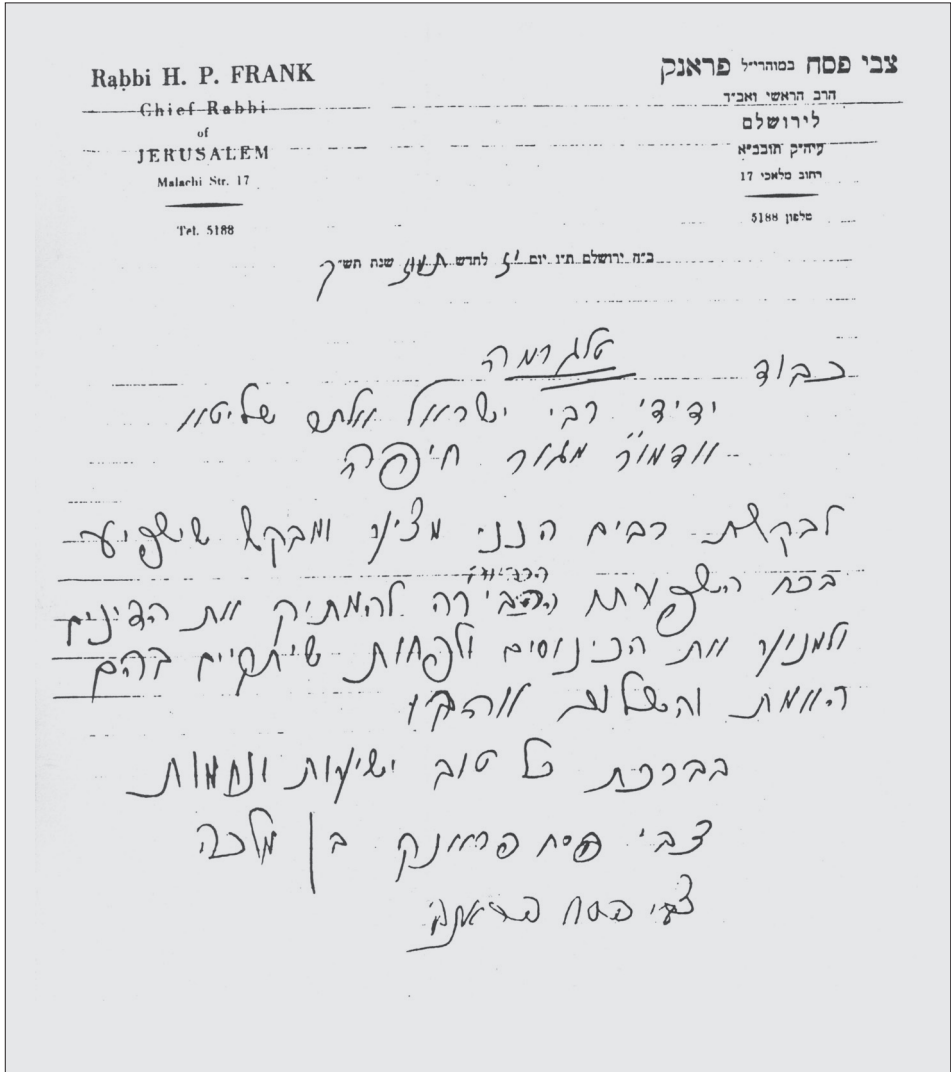 Rabbi H. P. FRANK
Chief Rabbi
of
JERUSALEM
Malachi Str. 17
Tel. 5188
צבי פסח במוהרי״ל פראנק
הרב הראשי ואב״ד
לירושלם
עיה״ק תובב״א
רחוב מלאכי 17
טלפון 5188
ב״ה ירושלם ת״ו יום יז לחדש תמוז שנת תש״ק
טלגרמה
כבוד
ידידי רבי ישראל אלתר שליטא
אדמו״ר מגור חיפה
לבקשת רבים הנני מציע ומבקש שישפיע
בכח השפעתם הכבירה להמתיק את הדינים
ולמנוע את הכינוסים ולפחות שיתקיים בהם
האמת והשלום אהבו
בברכת כל טוב ישועות ונחמות
צבי פסח פראנק בן מלכה
צבי פסח פראנק